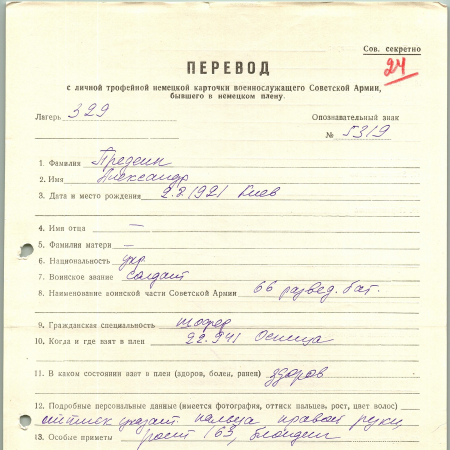 Сов. секретно
24
ПЕРЕВОД
с личной трофейной немецкой карточки военнослужащего Советской Армии,
бывшего в немецком плену.
Лагерь 329
Опознавательный знак
№ 5319
1. Фамилия Предеин
2. Имя Александр
3. Дата и место рождения 2.8.1921 Киев
4. Имя отца —
5. Фамилия матери —
6. Национальность укр
7. Воинское звание солдат
8. Наименование воинской части Советской Армии 66 развед. бат.
9. Гражданская специальность шофер
10. Когда и где взят в плен 22.9.41
11. В каком состоянии взят в плен (здоров, болен, ранен) здоров
12. Подробные персональные данные (имеется фотография, оттиск пальцев, рост, цвет волос)
оттиск указат. пальца правой руки
13. Особые приметы рост 163, блондин